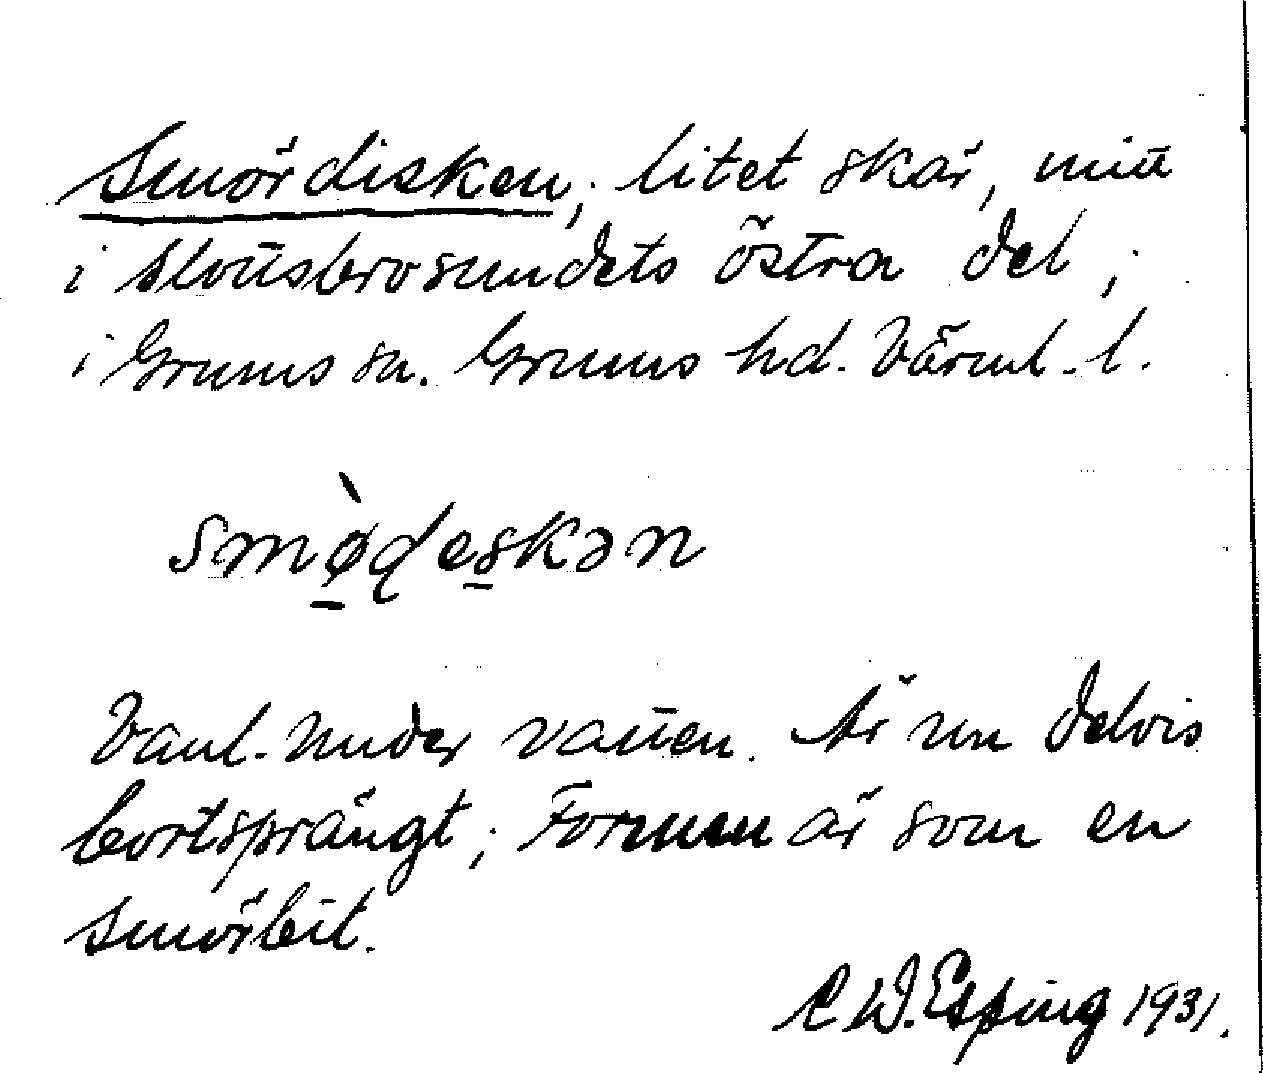 Smördisken; litet skär, mitt
i Slottsbrosundets östra del;
i Grums sn. Grums hd. Värml. l.
smø̀ḍeskən
Vanl. under vatten. Är nu delvis
bortsprängt; Formen är som en
smörbit.
C W. Esping 1931.